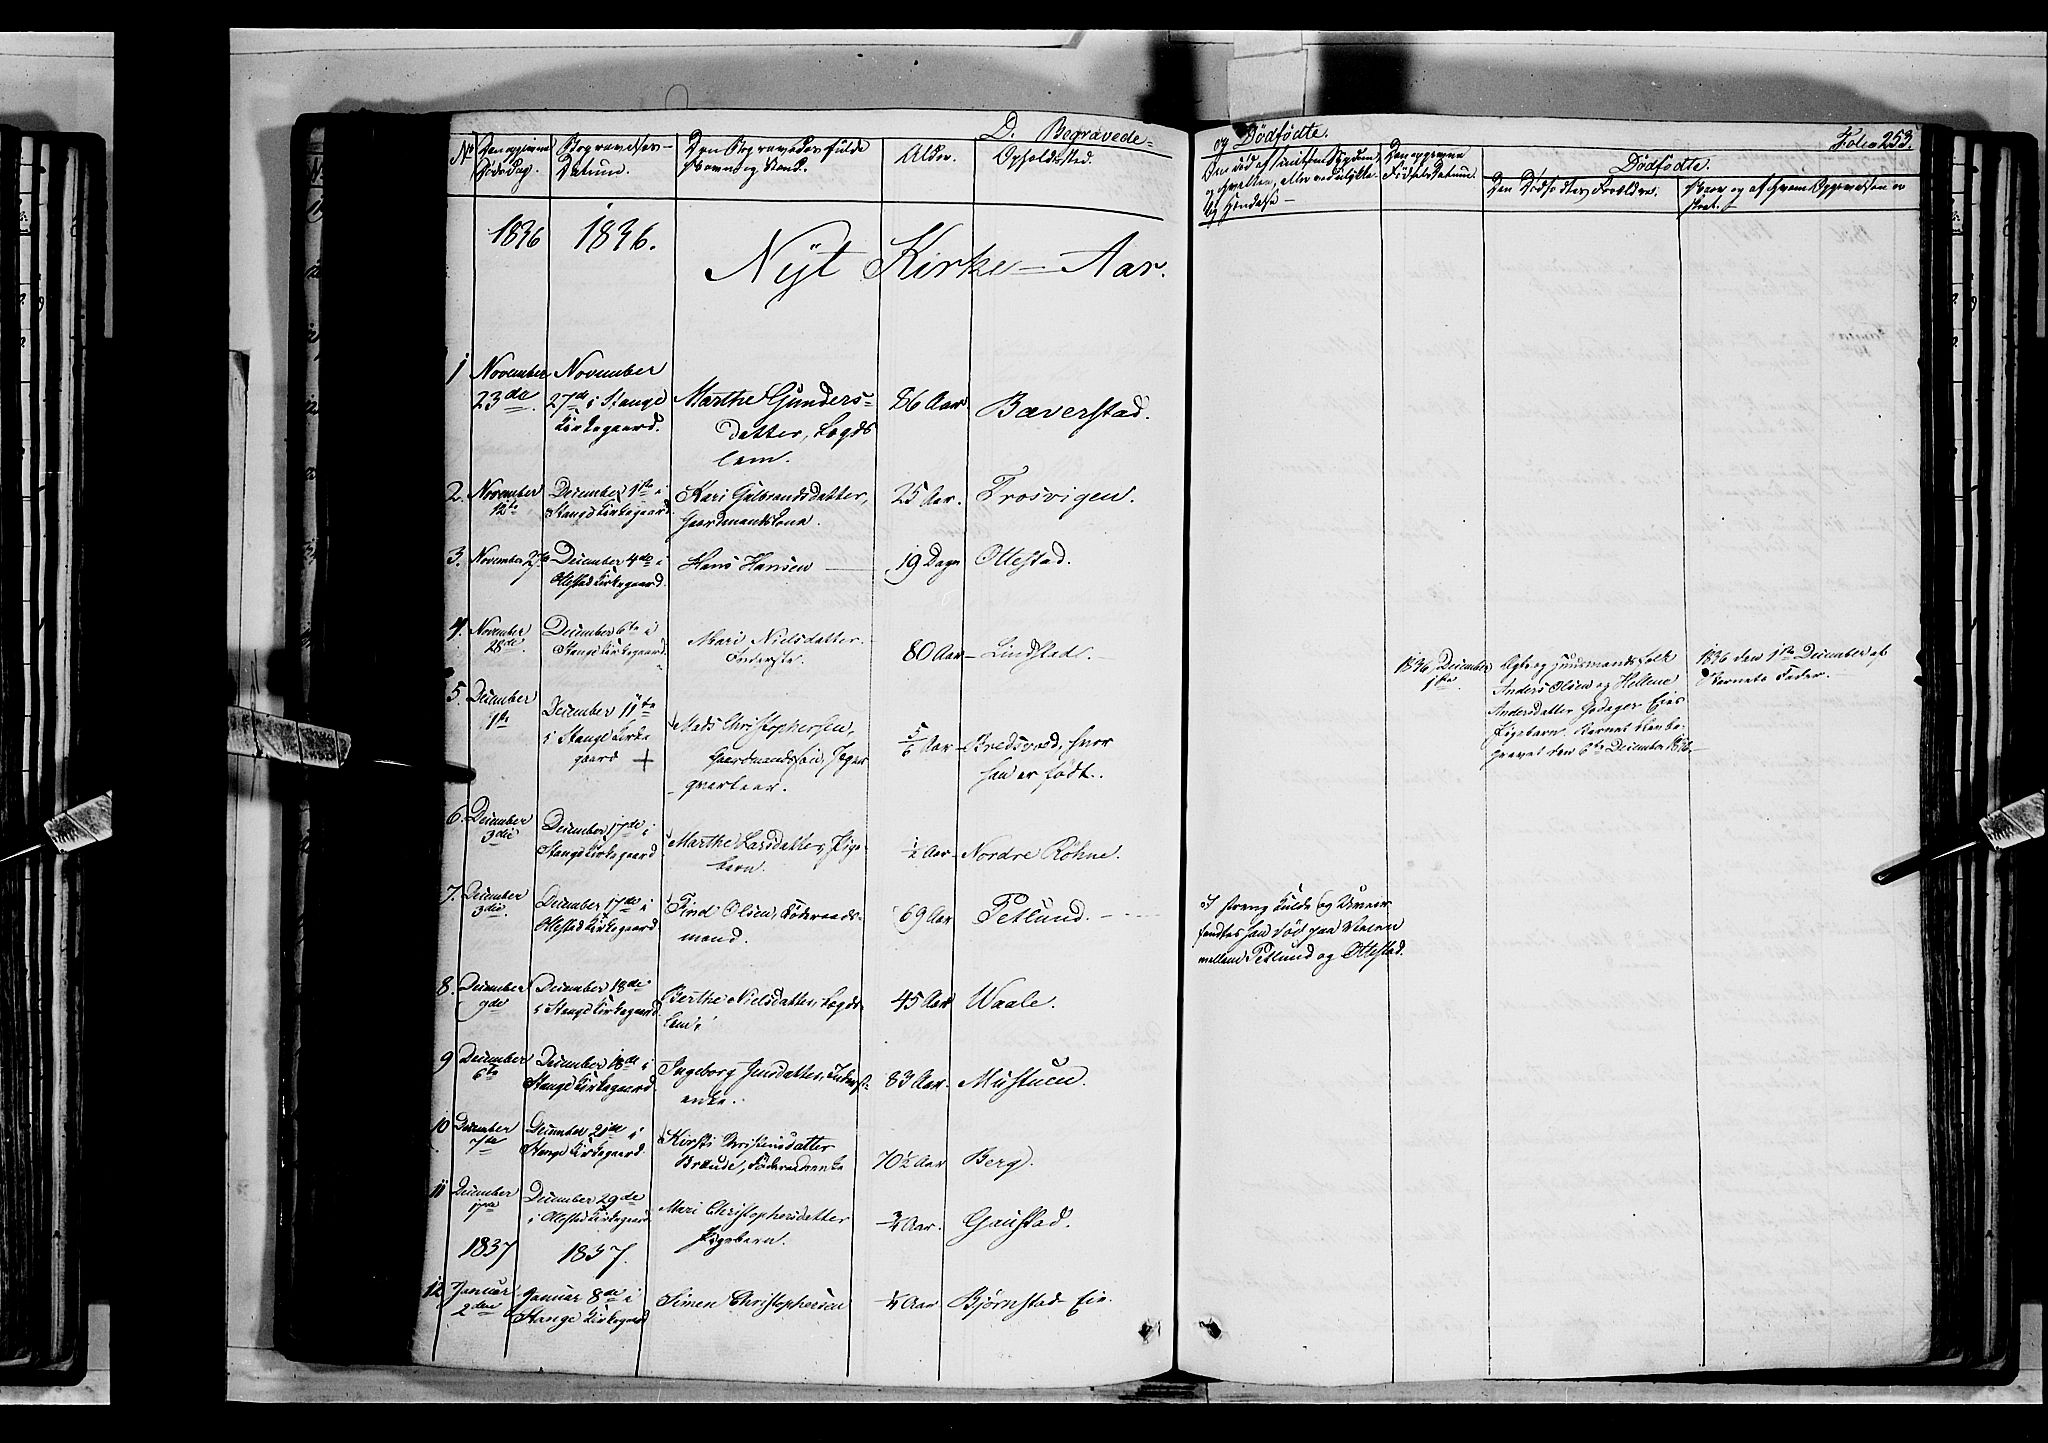 D. Begravede
og Dödfödte.
Folio 253.
No
Den opgivne
Dödsdag.
Begravelses-
Datum.
Den Begravedes fulde
Navn og Stand.
Alder.
Opholdssted.
Den opgivne
Födsels Datum
Dödfödte.
Den Dödfödtes Forældre.
Naar og af hvem Opgivelsen er
skeet.
1836 1836.
Nyt Kirke-Aar.
1 November
23de
November
27de i Stange
Kirkegaard.
Marthe Gunders-
datter, Lægds
lem.
86 Aar
Bæverstad.
2. November
12te
December 1ste i
Stange Kirkegaard.
Kari Gulbrandsdatter,
Gaardmandskone.
25 Aar.
Frosvigen.
3. November 27de
December 4de i
Ottestad Kirkegaard.
Hans Hansen
19 Dage
Ottestad.
4. November
28de.
December 6te i
Stange Kirkegaard.
Mari Nielsdatter.
Inderste.
80 Aar
Lindstad.
1836, December
1ste.
Ægte og Huusmandsfolk
Anders Olsen og Hellene
Andersdatter Godager Eies
Pigebarn. Barnet blev be-
gravet den 6te December 1836.
1836 den 1ste December af
Barnets Fader.
5. December
1ste
December 11te
i Stange Kirke
gaard +
Mads Christophersen,
Gaardmandssön,
5/6 Aar
hvor
han er födt.
6. December
3die
December 17de i
Stange Kirkegaard
Marthe Larsdatter, Pige-
barn.
1/2 Aar
Nordre Röhne.
7. December
3die.
December 17de i
Ottestad Kirkegaard
Find Olsen, Föderaads-
mand.
69 Aar
Petlund.
I streng Kulde og Uveir
fandtes han död paa Veien
mellem Petlund og Ottestad.
8. December
9de
December 18de
i Stange Kirkegaard.
Berthe Nielsdatter, Lægds-
lem.
45 Aar
Waale.
9 December
6te
December 18de i
Stange Kirkegaard.
Ingeborg Jensdatter, Inderst-
enke.
83 Aar.
Mustuen.
10 December
7de
December 21de i
Stange Kirkegaard.
Kirsti Christensdatter
Föderaadsenke
70 1/2 Aar
Berg.
11 December
17de
December 29de
i Ottestad Kirkegaard
Mari Christophersdatter
Pigebarn.
3/4 Aar.
Gaustad.
1837 1837.
12 Januar
2den
Januar 8de i
Stange Kirkegaard
Simen Christophersen
1/4 Aar
Bjørnstad Eie.